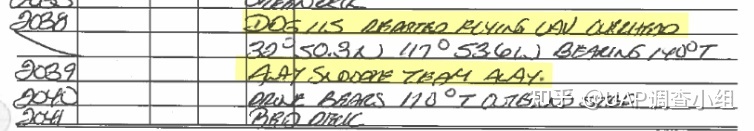 2038 DDG 115 REPORTED FLYING UAV OVERHEAD
32°50.3N 117°53.6W BEARING 140°T
2039 AWAY SNOOPIE TEAM AWAY.
2040 DRONE BEARS 110°T
2041 RED DECK
知乎 @UAP调查小组